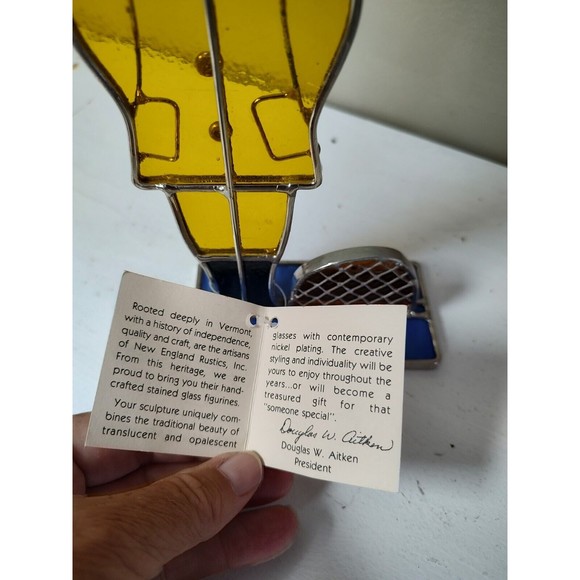 Rooted deeply in Vermont,
with a history of independence,
quality and craft, are the artisans
of New England Rustics, Inc.
From this heritage, we are
proud to bring you their hand-
crafted stained glass figurines.
Your sculpture uniquely com-
bines the traditional beauty of
translucent and opalescent
glasses with contemporary
nickel plating. The creative
styling and individuality will be
yours to enjoy throughout the
years...or will become a
treasured gift for that
"someone special".
Douglas W. Aitken
Douglas W. Aitken
President